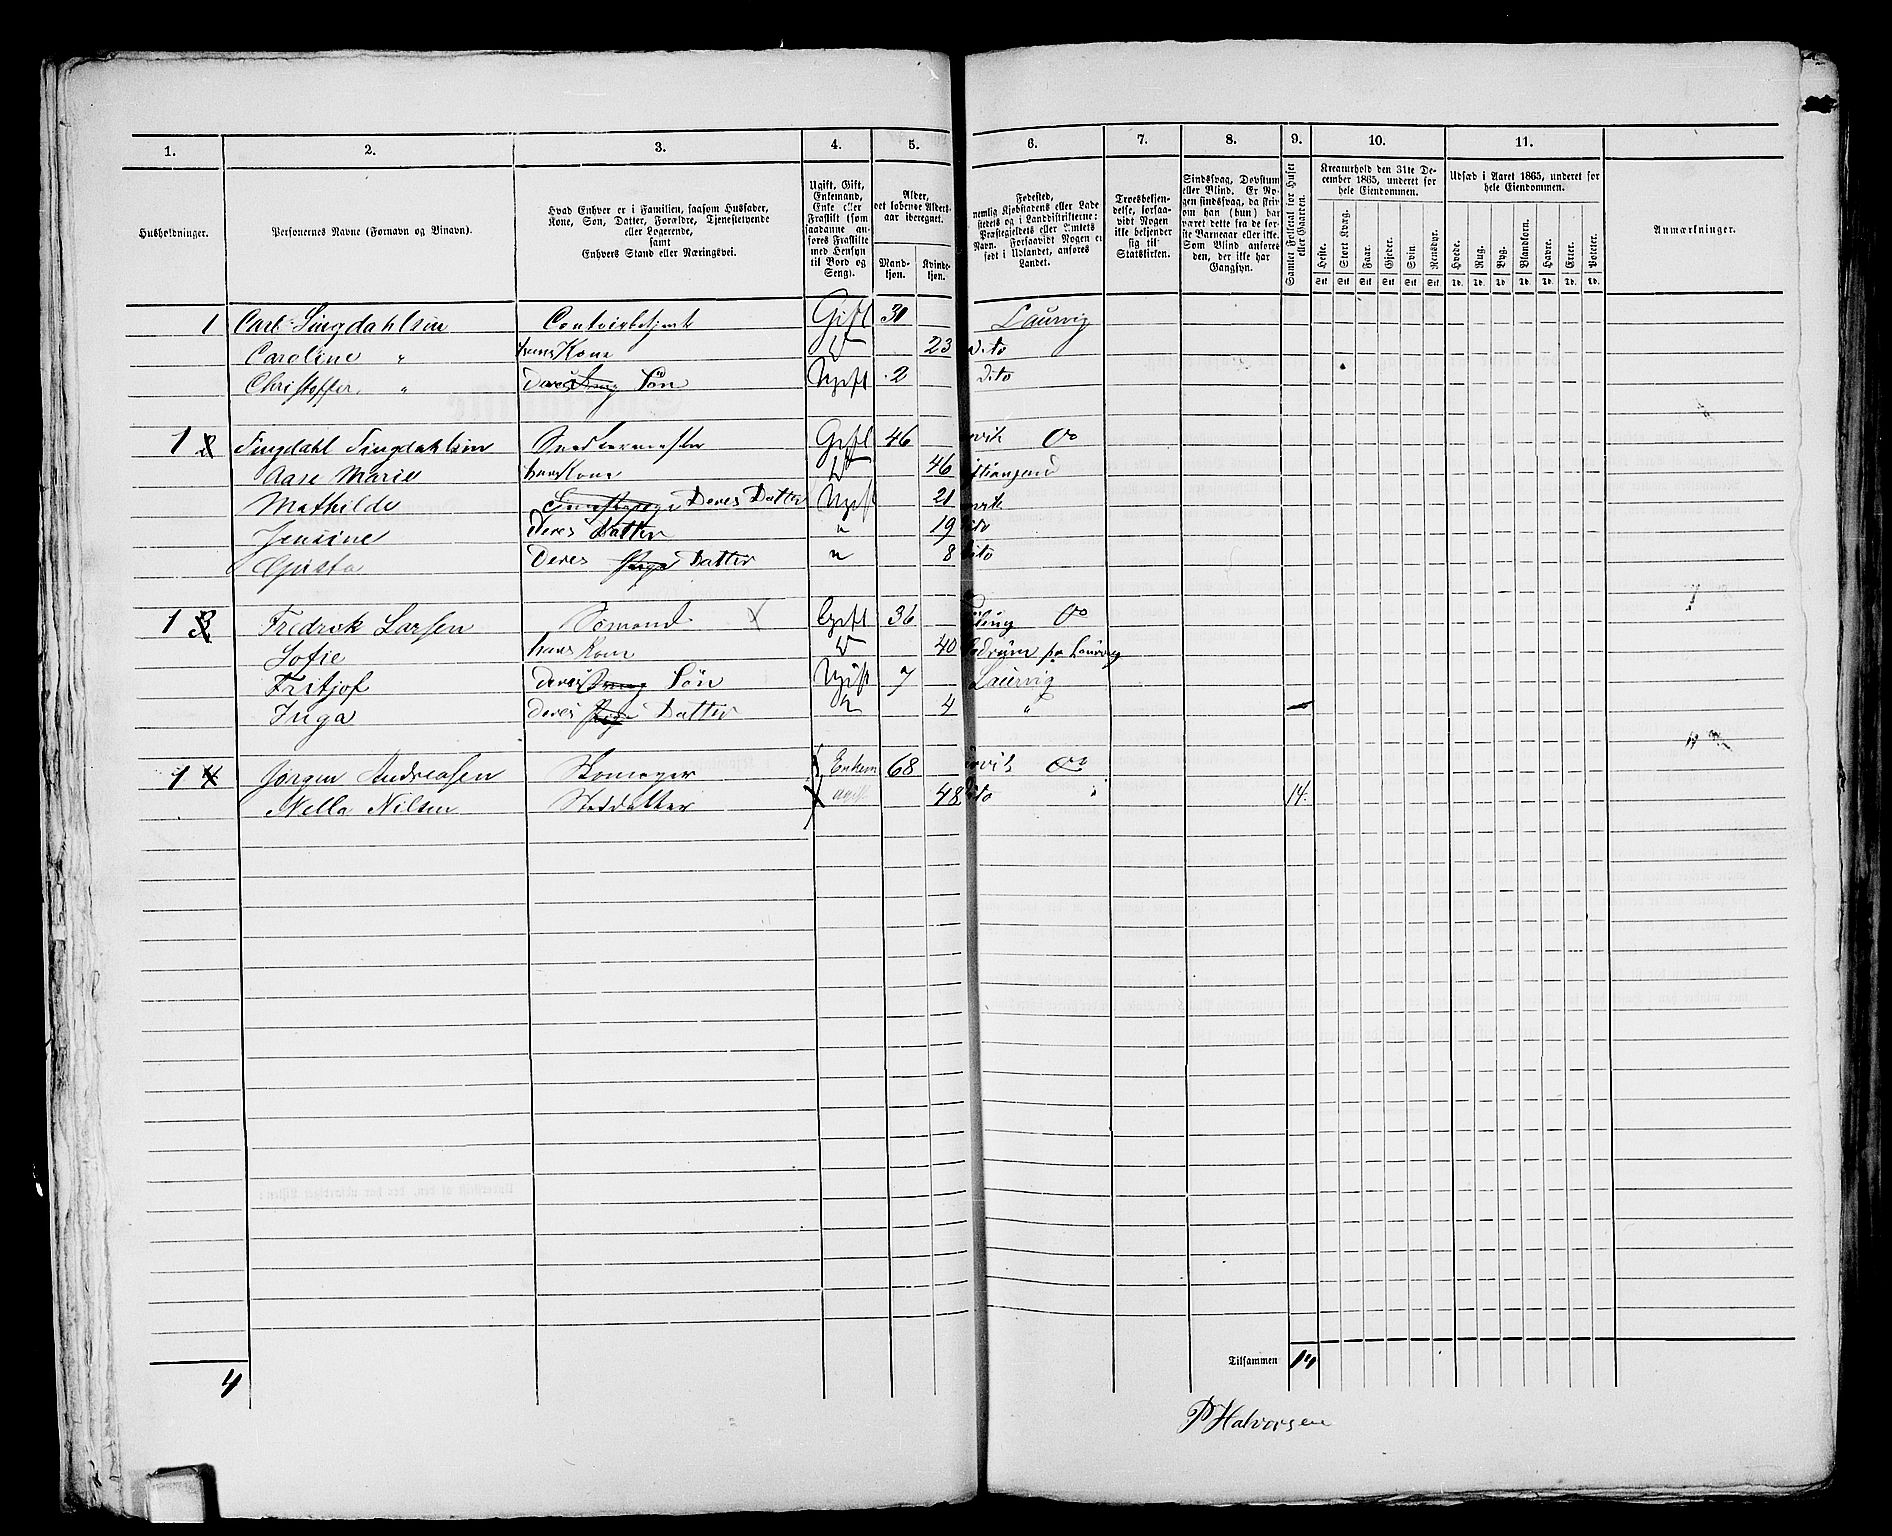 1. 2. 3. 4. 5. 6. 7. 8. 9. 10. 11.
Husholdninger.
Personernes Navne (Fornavn og Tilnavn).
Hvad Enhver er i Familien, saasom Husfader,
Kone, Søn, Datter, Forældre, Tjenestetyende
eller Logerende,
samt
Enhvers Stand eller Næringsvei.
Ugift, Gift,
Enkemand,
Enke eller
Fraskilt (som
saadanne an-
føres Fraskilte
med Hensyn
til Bord og
Seng).
Alder,
det løbende Alders-
aar iberegnet.
Mand-
kjøn.
Kvinde-
kjøn.
Fødested,
nemlig Kjøbstadens eller Lade
stedets og i Landdistrikterne:
Præstegjeldets eller Amtets
Navn. Forsaavidt Nogen er
født i Udlandet, anføres
Landet.
Troesbekjen-
delse, forsaa-
vidt Nogen
ikke bekjender
sig til
Statskirken.
Sindssvag, Døvstum
eller Blind. Er No-
gen sindssvag, da skriv
om han (hun) har
været dette fra de før-
ste Barneaar eller ikke.
Som Blind anføres
den, der ikke har
Gangsyn.
Samlet Folketal for Huset
eller Gaarden.
Kreaturhold den 31te De-
cember 1865, underet for
hele Eiendommen.
Heste. Stort Kvæg. Faar. Gjeder. Svin Rensdyr.
Stk Stk Stk Stk Stk Stk
Udsæd i Aaret 1865, underet for
hele Eiendommen.
Hvede. Rug. Byg. Blandkorn. Havre. Erter. Poteter.
Td. Td. Td. Td. Td. Td. Td.
Anmærkninger.
1 Carl Singdahlsen Gift 31 Laurvig
Caroline " hans Kone 23 dito
Christoffer " Deres Søn Ugift 2 dito
1 2 Singdahl Singdahlsen Snedkermester Gift 46
Aase Marie hans Kone 46
Mathilde Deres Datter Ugift 21
Jensine Deres Datter " 19
Deres Datter " 8
1 3 Fredrik Larsen Sømand Gift 36
Sofie hans Kone 40
Fritjof deres Søn Ugift 7 Laurvig
Inga deres Datter 4 "
1 4 Jørgen Andreasen Skomager Enkem 68
Nella Nilsen Stedatter ugift 48 14.
4
Tilsammen 14
P Halvorsen